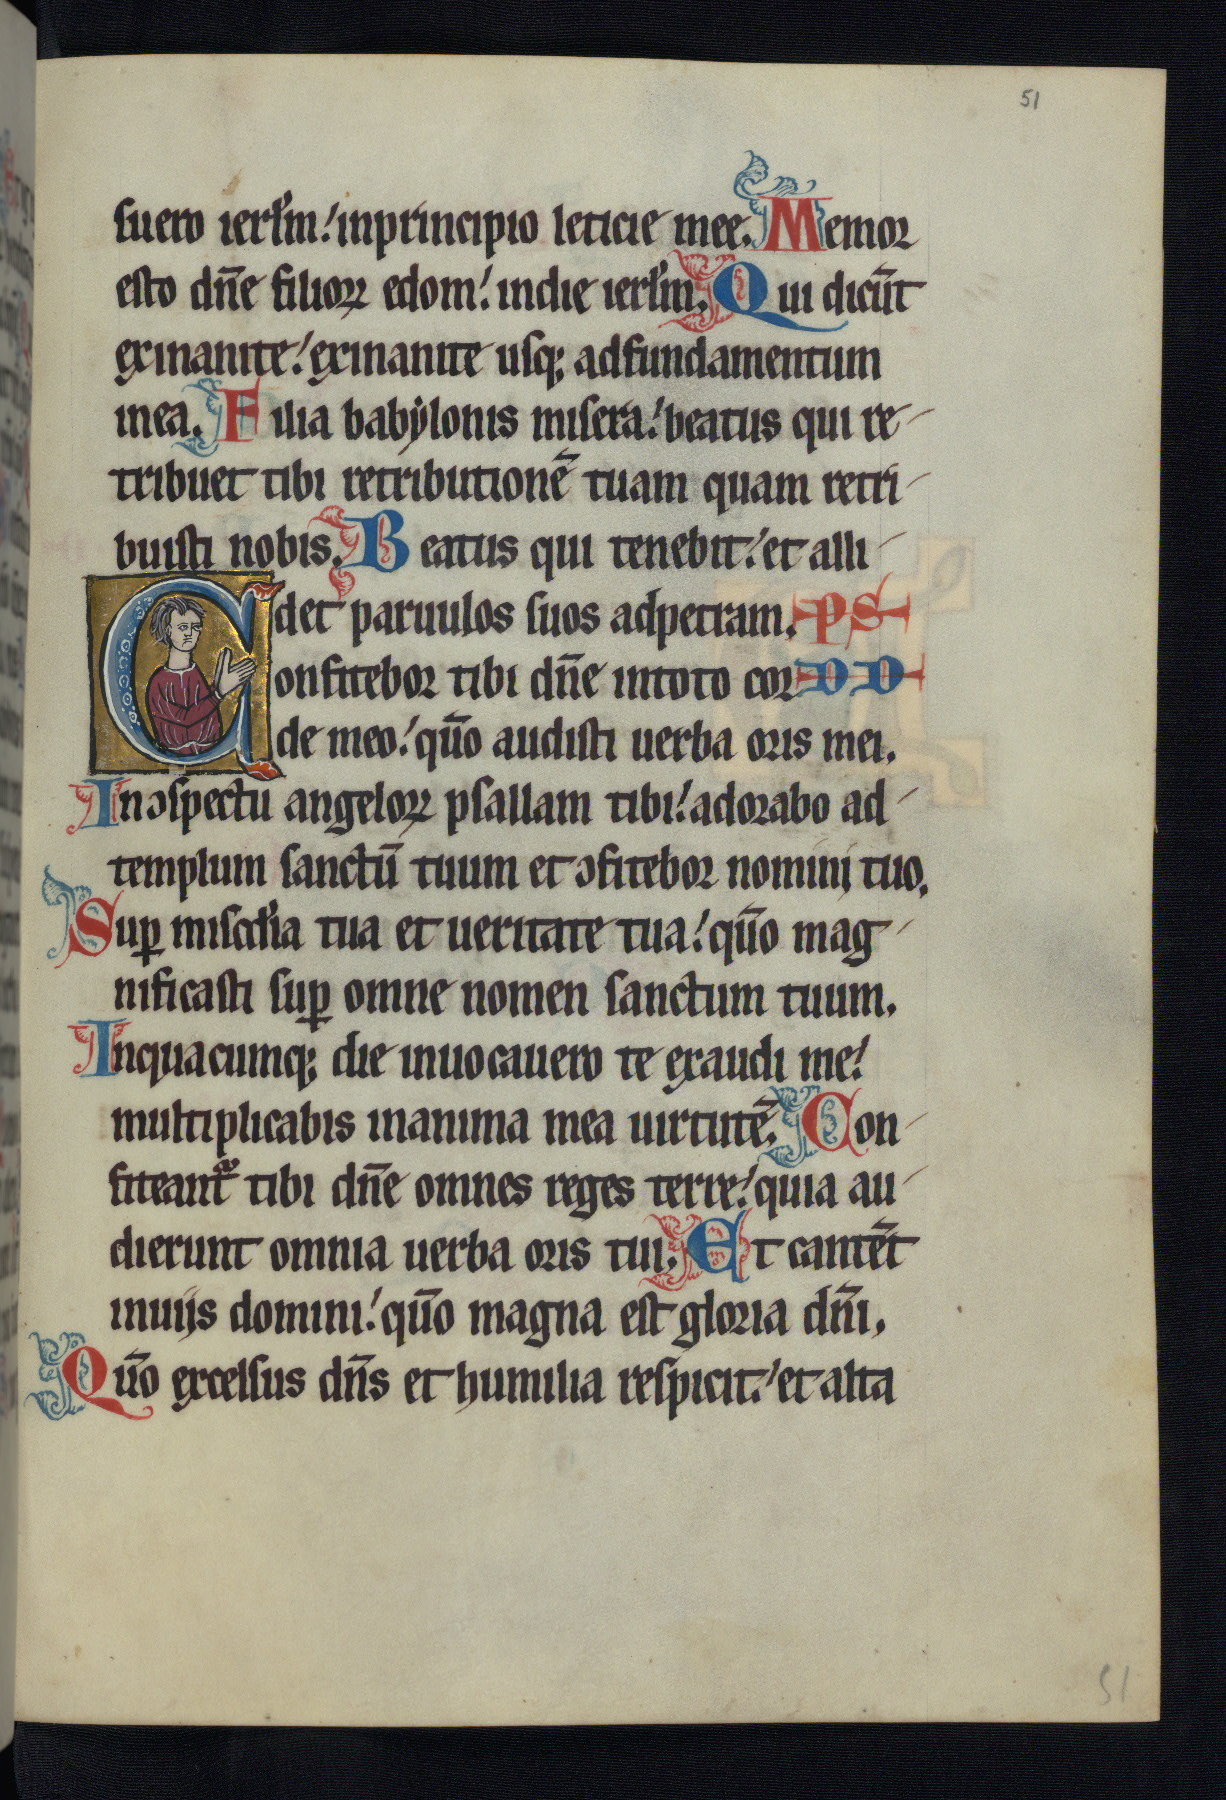 51
suero ierl̅m! inprincipio leticie mee. Memor
esto dn̅e filioꝝ edom! indie ierl̅m. Qui dicūt
exinanite! exinanite usq; adfundamentum
inea. Filia babẏlonis misera! beatus qui re-
tribuet tibi retributionē tuam quam retri-
buisti nobis. Beatus qui tenebit! et alli-
det paruulos suos adpetram. PS
Confitebor tibi dn̅e intoto cor DD
de meo! qūo audisti uerba oris mei.
Inↄspectu angeloꝝ psallam tibi! adorabo ad-
templum sanctū tuum et ↄfitebor nomini tuo.
Suꝑ misc̅dia tua et ueritate tua! qūo mag-
nificasti suꝑ omne nomen sanctum tuum.
Inquacumq; die inuocauero te exaudi me!
multiplicabis inanima mea uirtutē. Con-
fiteant᷑ tibi dn̅e omnes reges terre! quia au-
dierunt omnia uerba oris tui. Et cantēt
inuijs domini! qūo magna est gloria dn̅i.
Qūo excelsus dn̅s et humilia respicit! et alta
51